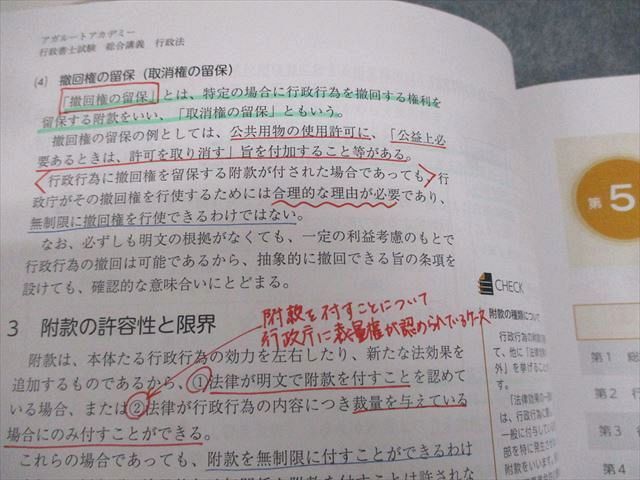 アガルートアカデミー
行政書士試験 総合講義 行政法
(4) 撤回権の留保（取消権の留保）
「撤回権の留保」とは、特定の場合に行政行為を撤回する権利を
留保する附款をいい、「取消権の留保」ともいう。
撤回権の留保の例としては、公共用物の使用許可に、「公益上必
要あるときは、許可を取り消す」旨を付加すること等がある。
行政行為に撤回権を留保する附款が付された場合であっても、行
政庁がその撤回権を行使するためには合理的な理由が必要であり、
無制限に撤回権を行使できるわけではない。
なお、必ずしも明文の根拠がなくても、一定の利益考慮のもとで
行政行為の撤回は可能であるから、抽象的に撤回できる旨の条項を
設けても、確認的な意味合いにとどまる。
附款を付すことについて
行政庁に裁量権が認められているケース
3 附款の許容性と限界
附款は、本体たる行政行為の効力を左右したり、新たな法効果を
追加するものであるから、①法律が明文で附款を付すことを認めて
いる場合、または②法律が行政行為の内容につき裁量を与えている
場合にのみ付すことができる。
これらの場合であっても、附款を無制限に付すことができるわけ
CHECK
附款の種類について
行政行為の
て、他に「法律
外」を挙げること
す。
「法律効果の一
は、行政行為に
一般に付与してい
部を特に発生させ
附款をいいます。
第5
第1 総
第2 行
第3 行
第4